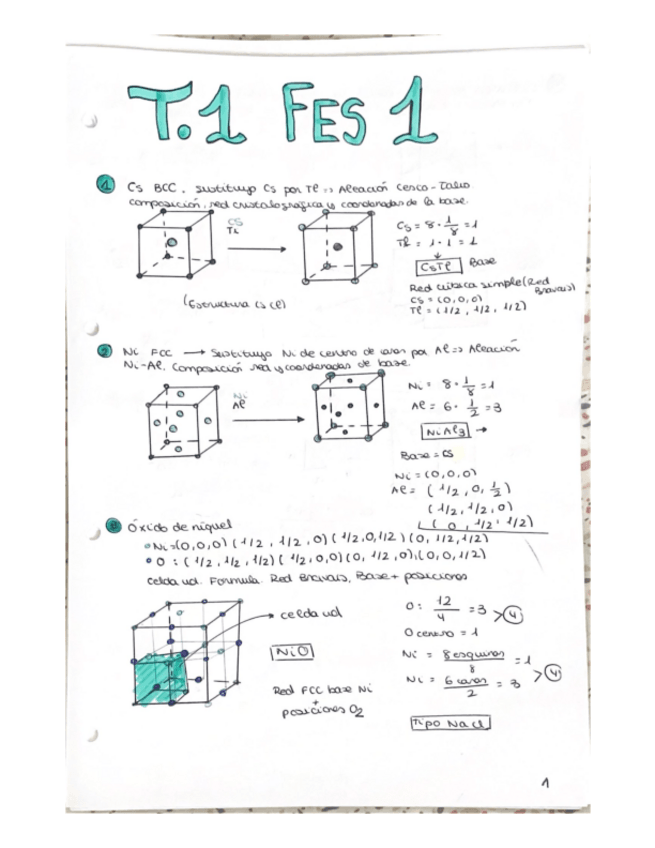 T.1 FES 1
1 Cs BCC. sustituyo Cs por Tl => Aleación Cesio-Talio.
composición, red cristalográfica y coordenadas de la base.
Cs
Tl
Cs = 8 · 1/8 = 1
Tl = 1 · 1 = 1
CsTl Base
(Estructura Cs Cl)
Red cúbica simple (Red Bravais)
Cs = (0,0,0)
Tl = (1/2, 1/2, 1/2)
2 Ni FCC → Sustituyo Ni de centro de caras por Al => Aleación
Ni-Al. Composición red y coordenadas de base.
Ni
Al
Ni = 8 · 1/8 = 1
Al = 6 · 1/2 = 3
NiAl3 →
Base = CS
Ni = (0,0,0)
Al = (1/2, 0, 1/2)
(1/2, 1/2, 0)
(0, 1/2, 1/2)
3 Óxido de níquel
Ni = (0,0,0) (1/2, 1/2, 0) (1/2, 0, 1/2) (0, 1/2, 1/2)
O : (1/2, 1/2, 1/2) (1/2, 0, 0) (0, 1/2, 0), (0, 0, 1/2)
celda ud. Formula. Red Bravais, Base + posiciones
celda ud
NiO
Red FCC base Ni
+
posiciones O2
O: 12/4 = 3 > 4
O centro = 1
Ni = 8 esquinas/8 = 1
Ni = 6 caras/2 = 3 > 4
Tipo NaCl
1